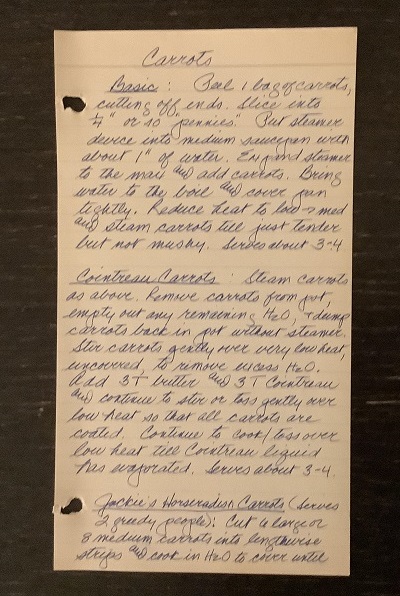 Carrots
Basic: Peel 1 bag of carrots,
cutting off ends. Slice into
1/4" or so "pennies". Put steamer
device into medium saucepan with
about 1" of water. Expand steamer
to the max and add carrots. Bring
water to the boil and cover pan
tightly. Reduce heat to low → med
and steam carrots till just tender
but not mushy. Serves about 3-4
Cointreau Carrots: Steam carrots
as above. Remove carrots from pot,
empty out any remaining H2O, + dump
carrots back in pot without steamer.
Stir carrots gently over very low heat,
uncovered, to remove excess H2O.
Add 3T butter and 3T Cointreau
and continue to stir or toss gently over
low heat so that all carrots are
coated. Continue to cook/toss over
low heat till Cointreau liquid
has evaporated. Serves about 3-4.
Jackie's Horseradish Carrots (serves
2 greedy people): Cut 6 large or
8 medium carrots into lengthwise
strips and cook in H2O to cover until